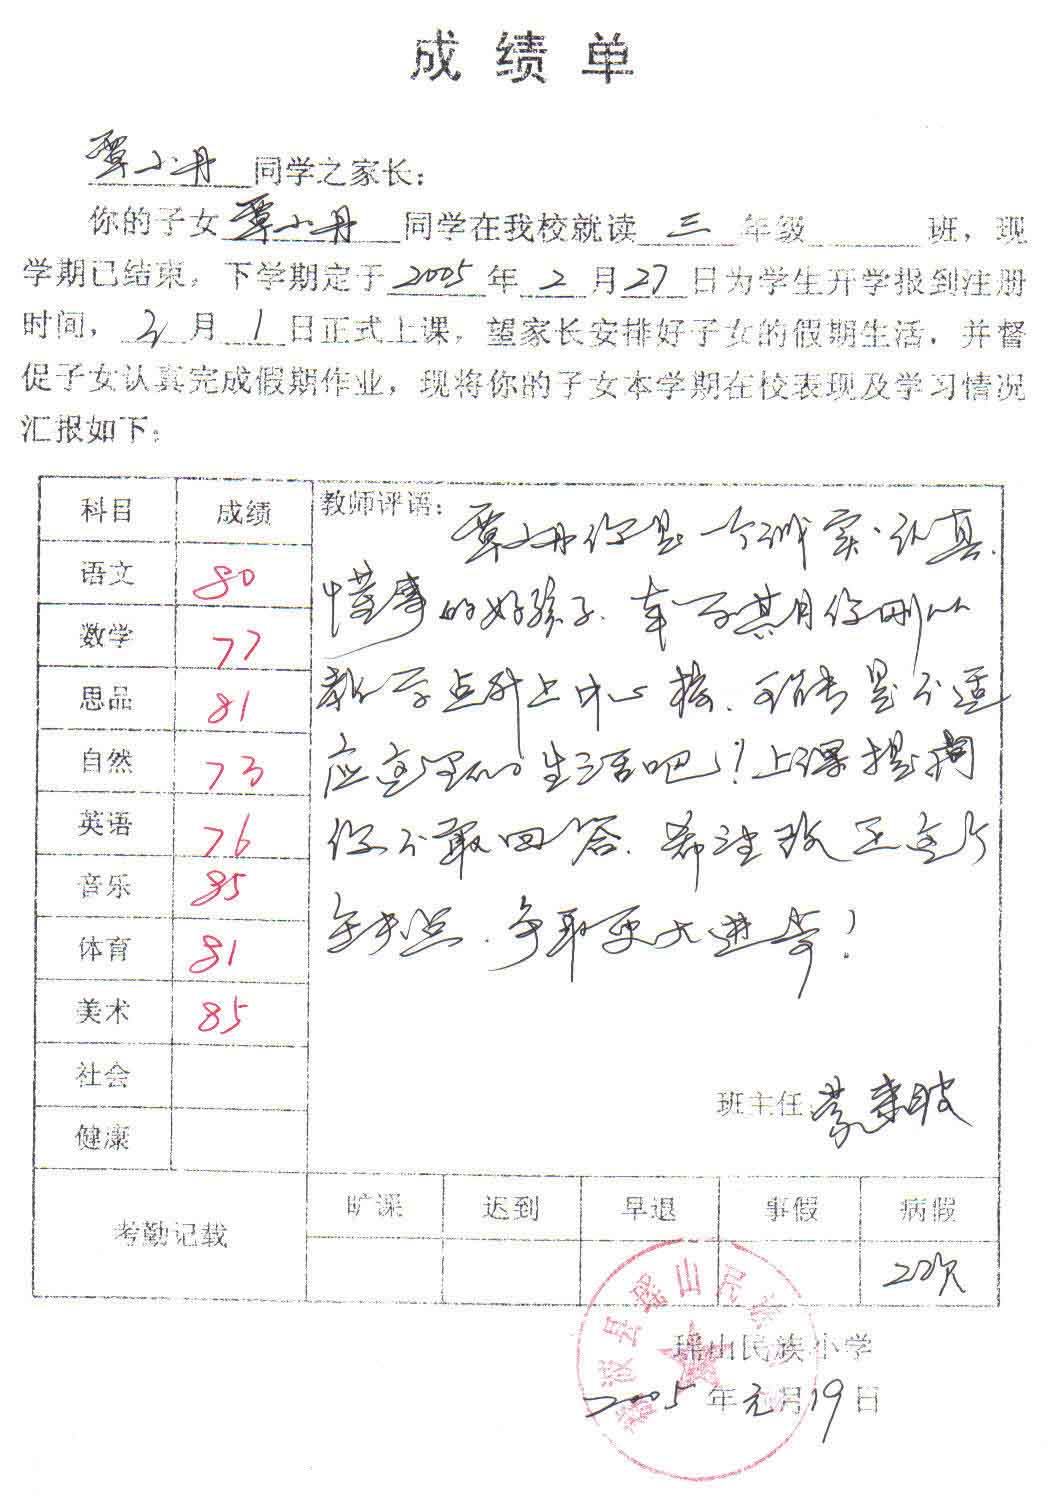 成绩单
覃小丹同学之家长：
你的子女覃小丹同学在我校就读三年级 班，现
学期已结束，下学期定于2005年2月27日为学生开学报到注册
时间，3月1日正式上课，望家长安排好子女的假期生活，并督
促子女认真完成假期作业，现将你的子女本学期在校表现及学习情况
汇报如下：
科目 成绩
语文 80
数学 77
思品 81
自然 73
英语 76
音乐 85
体育 81
美术 85
社会
健康
教师评语：
覃小丹你是一个诚实、认真、
懂事的好孩子．本学期你刚从
教学点升上中心校．可能是不适
应这里的生活吧！？上课提问
你不敢回答．希望改正这个
缺点．争取更大进步！
班主任：蒙
考勤记载 旷课 迟到 早退 事假 病假
22次
县瑶山民族
瑶山民族小学
2005年元月19日